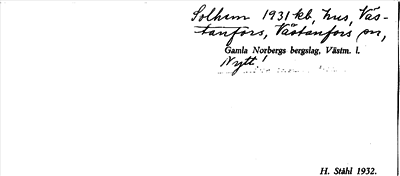 Solhem 1931 kb, hus, Väs-
tanfors, Västanfors sn,
Gamla Norbergs bergslag, Västm. l.
Nytt!
H. Ståhl 1932.